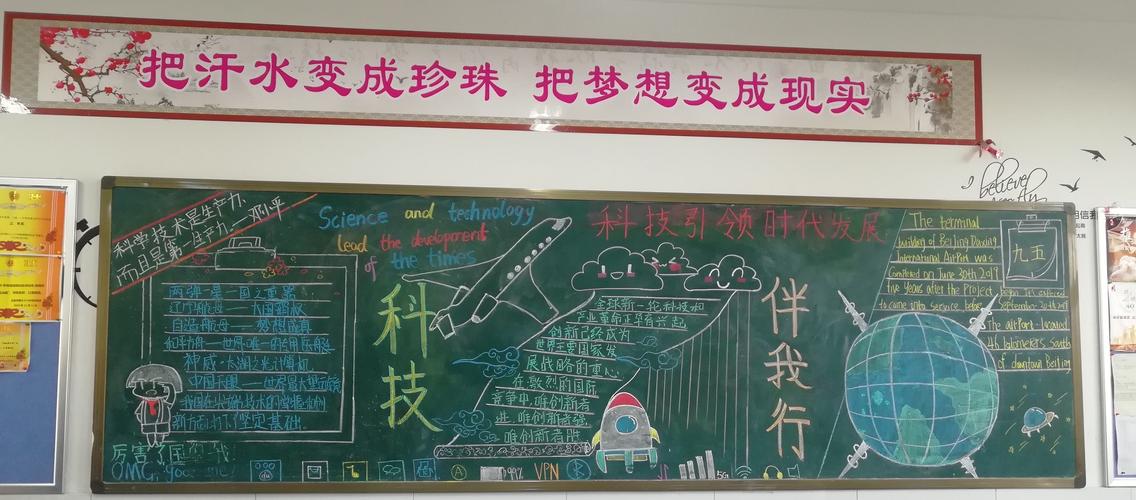 把汗水变成珍珠 把梦想变成现实
believe
科学技术是生产力，
而且是第一生产力.——邓小平
Science and technology
lead the development
of the times
科技引领时代发展
科技
伴我行
两弹一星——国之重器
辽宁舰
自造航母——梦想成真
和平方舟——世界唯一的专用医院船
神威·太湖之光计算机
中国天眼——世界最大望远镜
坚定基础.
厉害了
OMG,
全球新一轮科技和
产业革命正孕育兴起
创新已经成为
世界主要国家发
展战略的重心.
在激烈的国际
竞争中,唯创新者
进.唯创新者强.
唯创新者胜.
The terminal
building of Beijing Daxing
International Airport was
Completed on June 30th 2019
five years after the Project
began. It is expected
to come into service before
September 30th 2019
The airport located
46 kilometers South
of downtown Beijing
九五
99%
VPN
5G